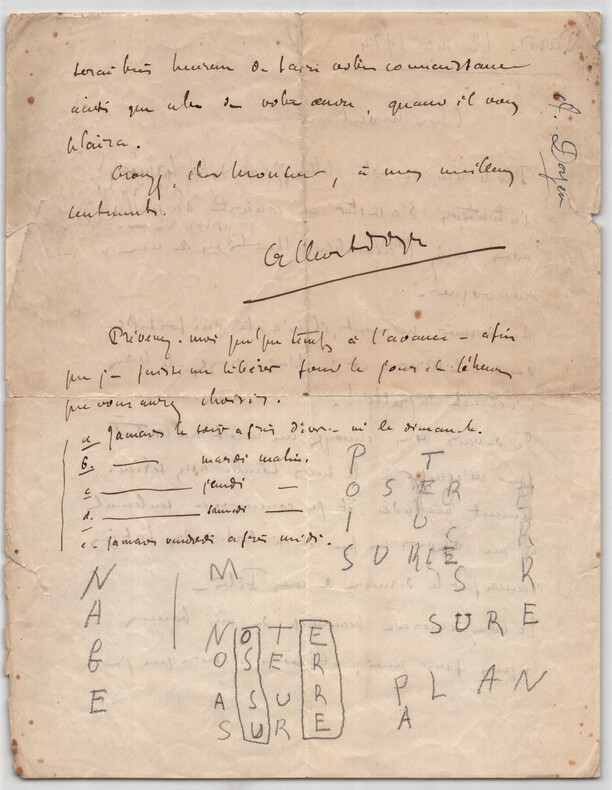 serai très heureux de faire votre connaissance
ainsi que celle de votre œuvre, quand il vous
plaira.
Croyez, cher Monsieur, à mes meilleurs
sentiments.
Albert Doyen
A. Doyen
Prévenez-moi quelque temps à l'avance – afin
que je puisse me libérer pour le jour et l'heure
que vous aurez choisis.
a. jamais le soir après dîner – ni le dimanche.
b. —— mardi matin.
c. —— jeudi —
d. —— samedi —
e. jamais vendredi après midi.
P T
O S E R E
I U S R
S U R E R
S R
S U R E
NAGE
M
N O T E
O S E R
A S U R
S U R E
P L A N
A